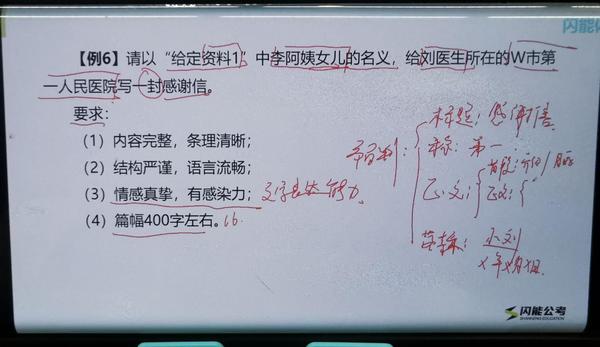 闪能公
【例6】请以“给定资料1”中李阿姨女儿的名义，给刘医生所在的W市第
一人民医院写一封感谢信。
要求：
（1）内容完整，条理清晰；
（2）结构严谨，语言流畅；
（3）情感真挚，有感染力；文字表达能力
（4）篇幅400字左右。16
标题：感谢信
称：第一
正文：
正文：
落款：小刘
X年X月X日
闪能公考
SHANNENG EDUCATION